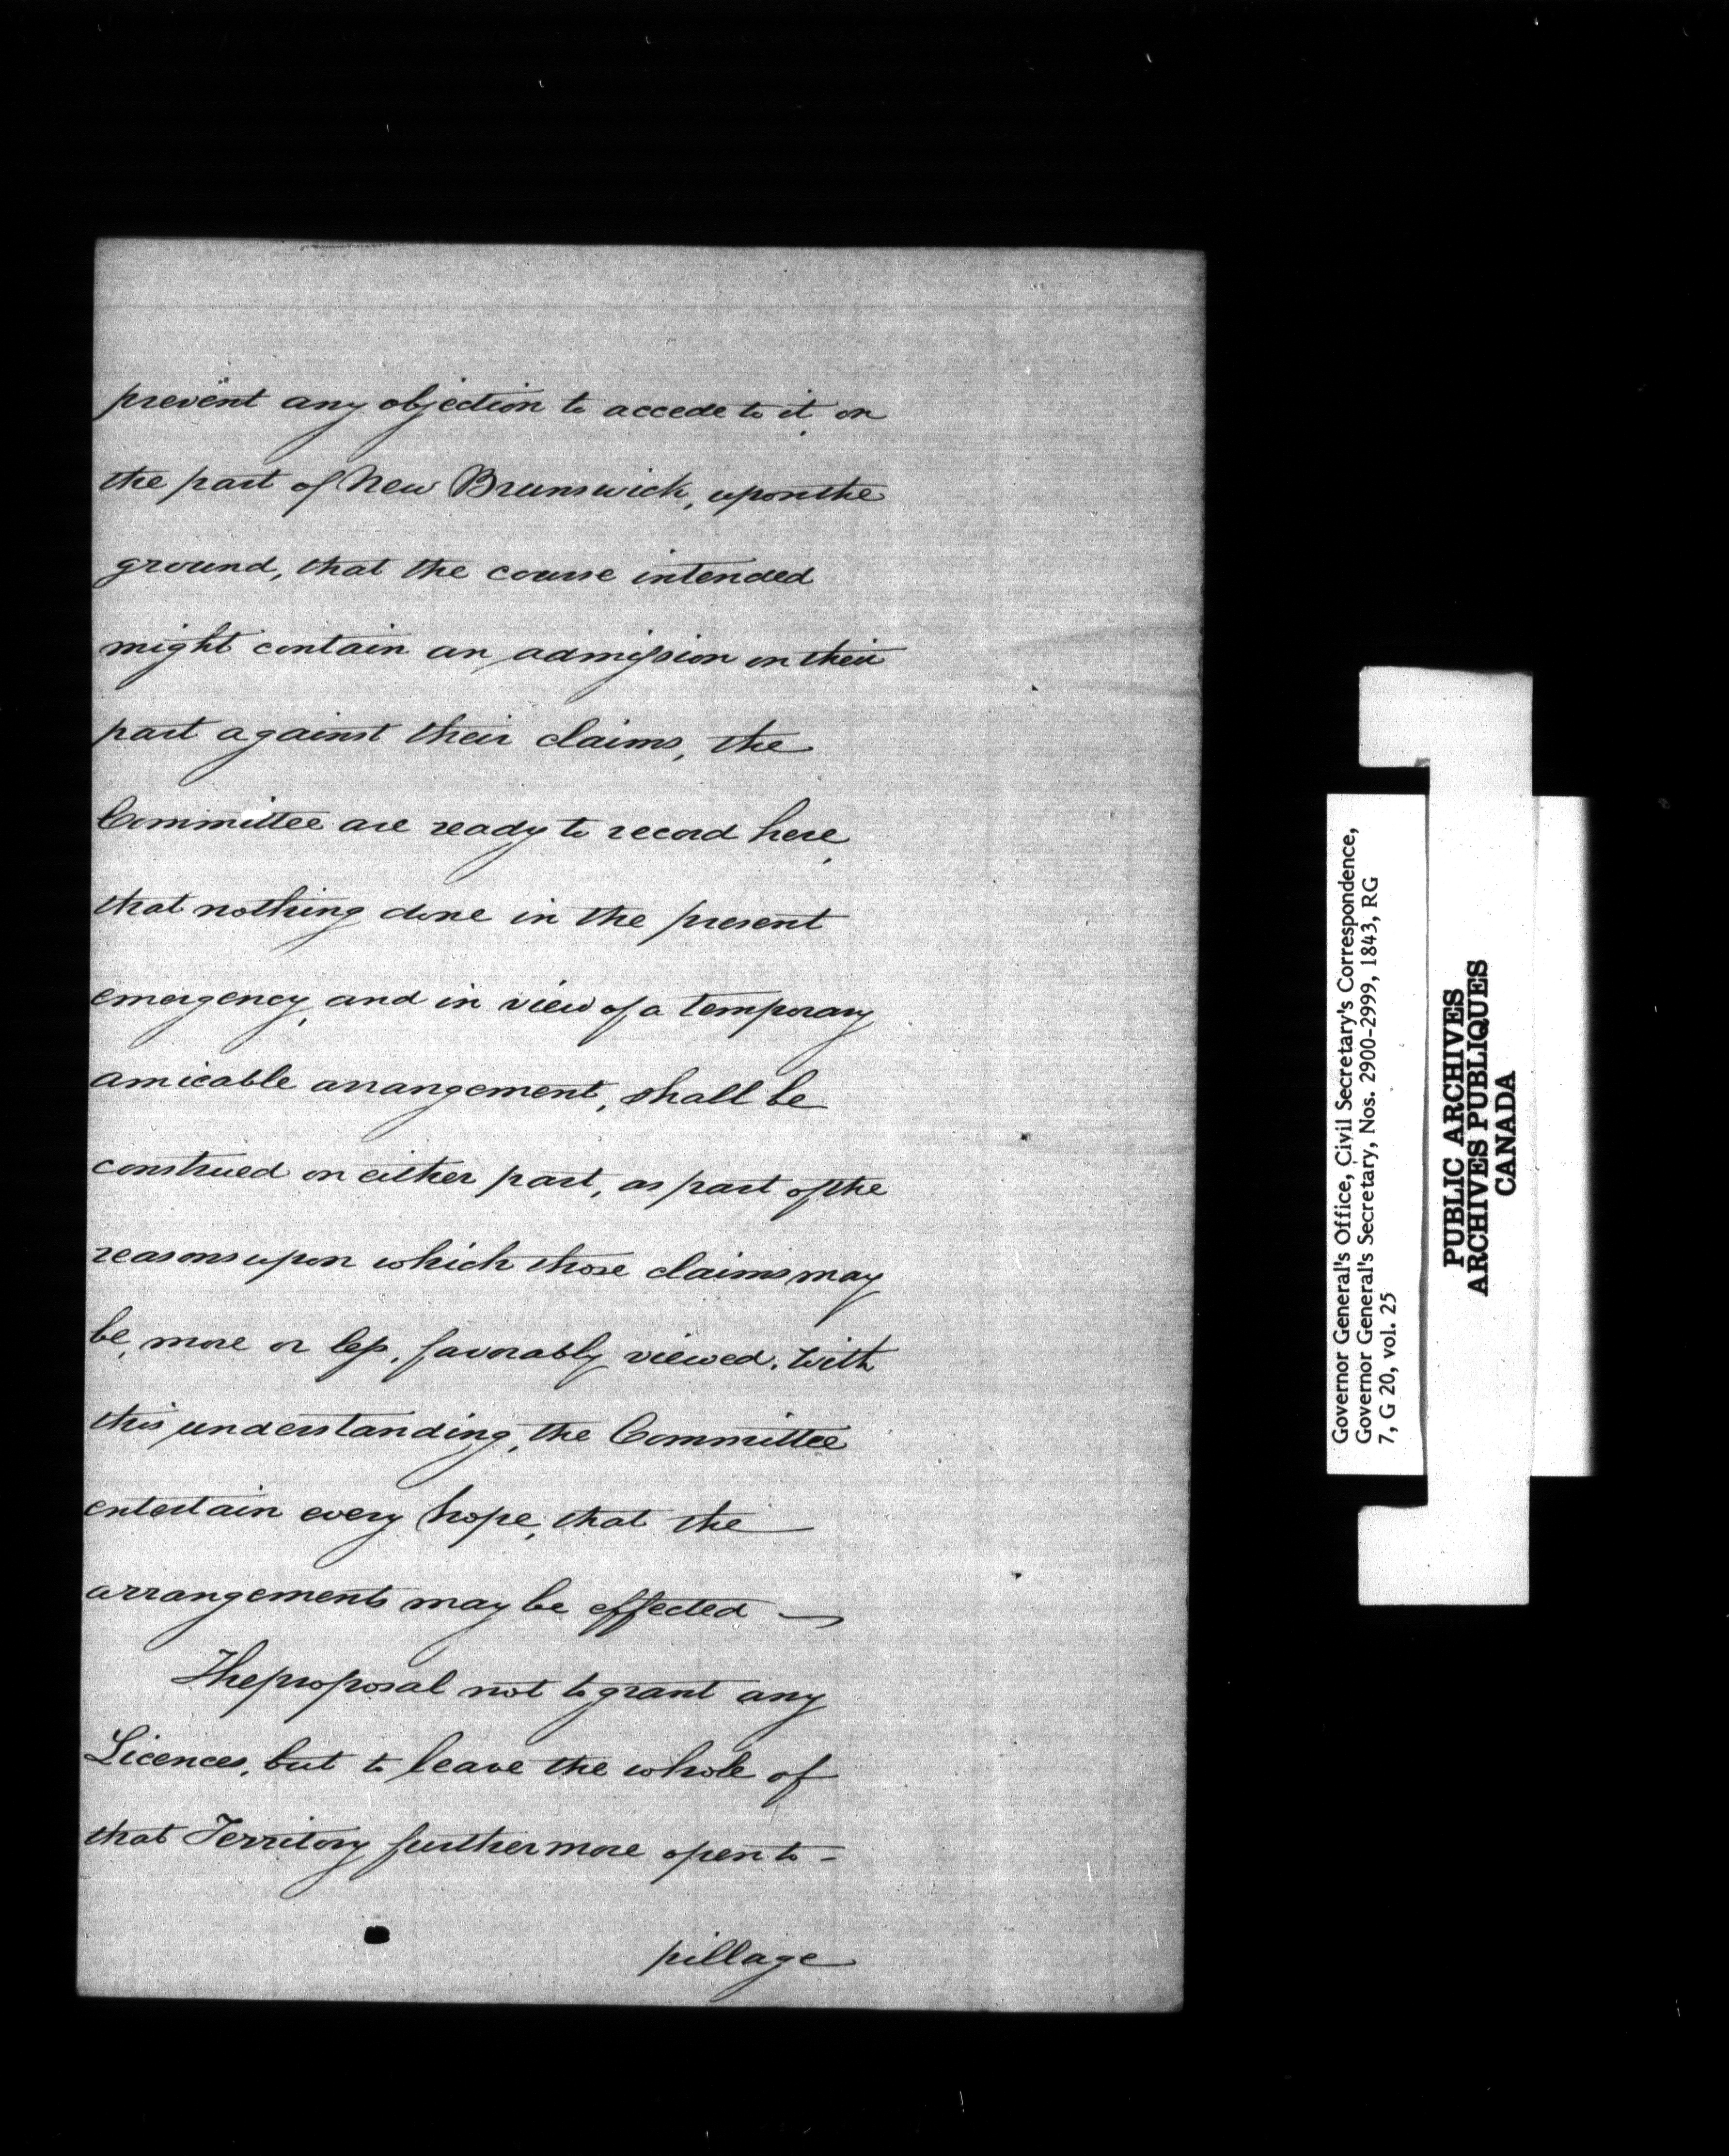 prevent any objection to accede to it, on
the part of New Brunswick, upon the
ground, that the course intended
might contain an admission on their
part against their claims, the
Committee are ready to record here,
that nothing done in the present
emergency, and in view of a temporary
amicable arrangement, shall be
construed on either part, as part of the
reasons upon which those claims may
be, more or less, favorably viewed. With
this understanding, the Committee
entertain every hope, that the
arrangements may be effected —
The proposal not to grant any
Licences, but to leave the whole of
that Territory furthermore open to -
pillage
Governor General's Office, Civil Secretary's Correspondence,
Governor General's Secretary, Nos. 2900-2999, 1843, RG
7, G 20, vol. 25
PUBLIC ARCHIVES
ARCHIVES PUBLIQUES
CANADA